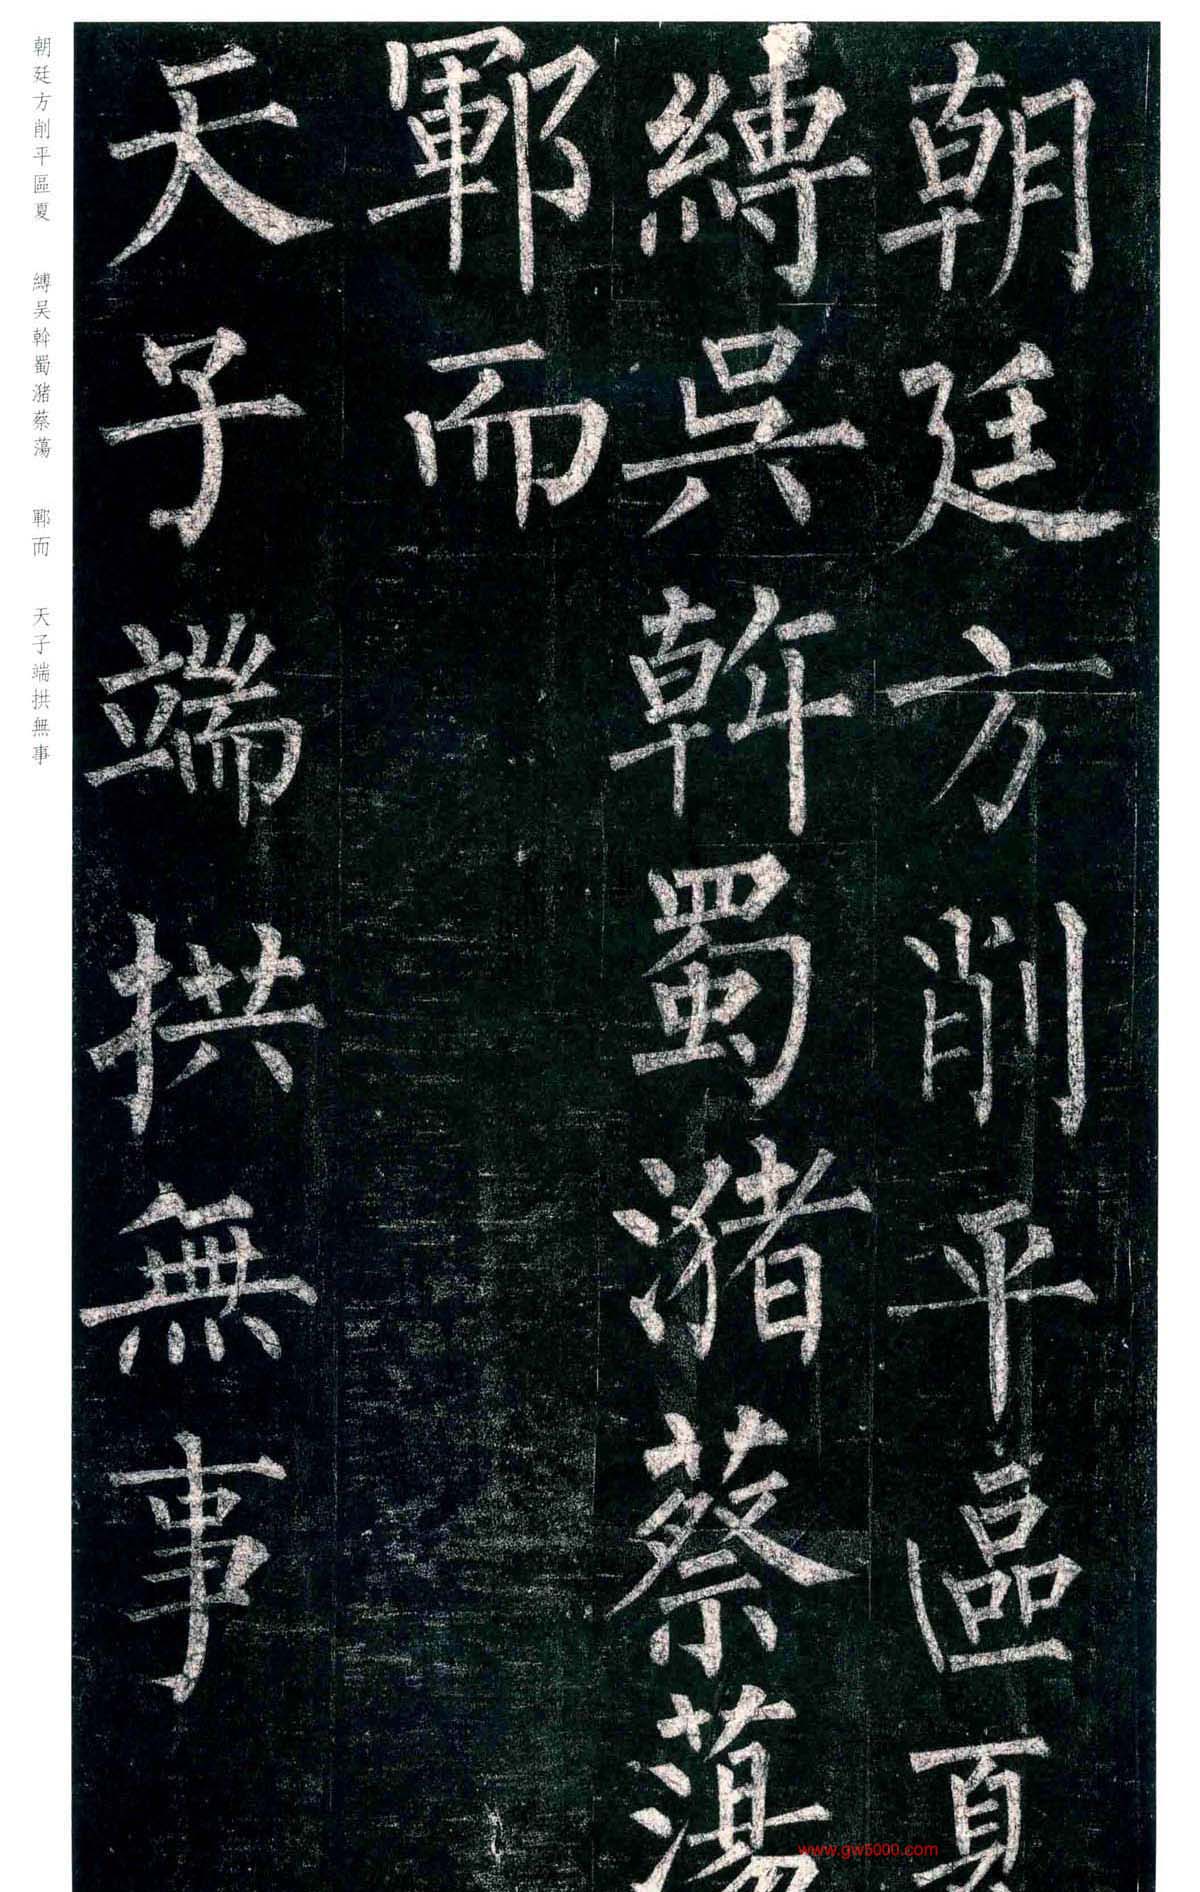 朝廷方削平區夏
縛吳斡蜀瀦蔡蕩
鄆而
天子端拱無事
朝廷方削平區夏 縛吴斡蜀瀦蔡蕩 鄆而 天子端拱無事
www.gw5000.com